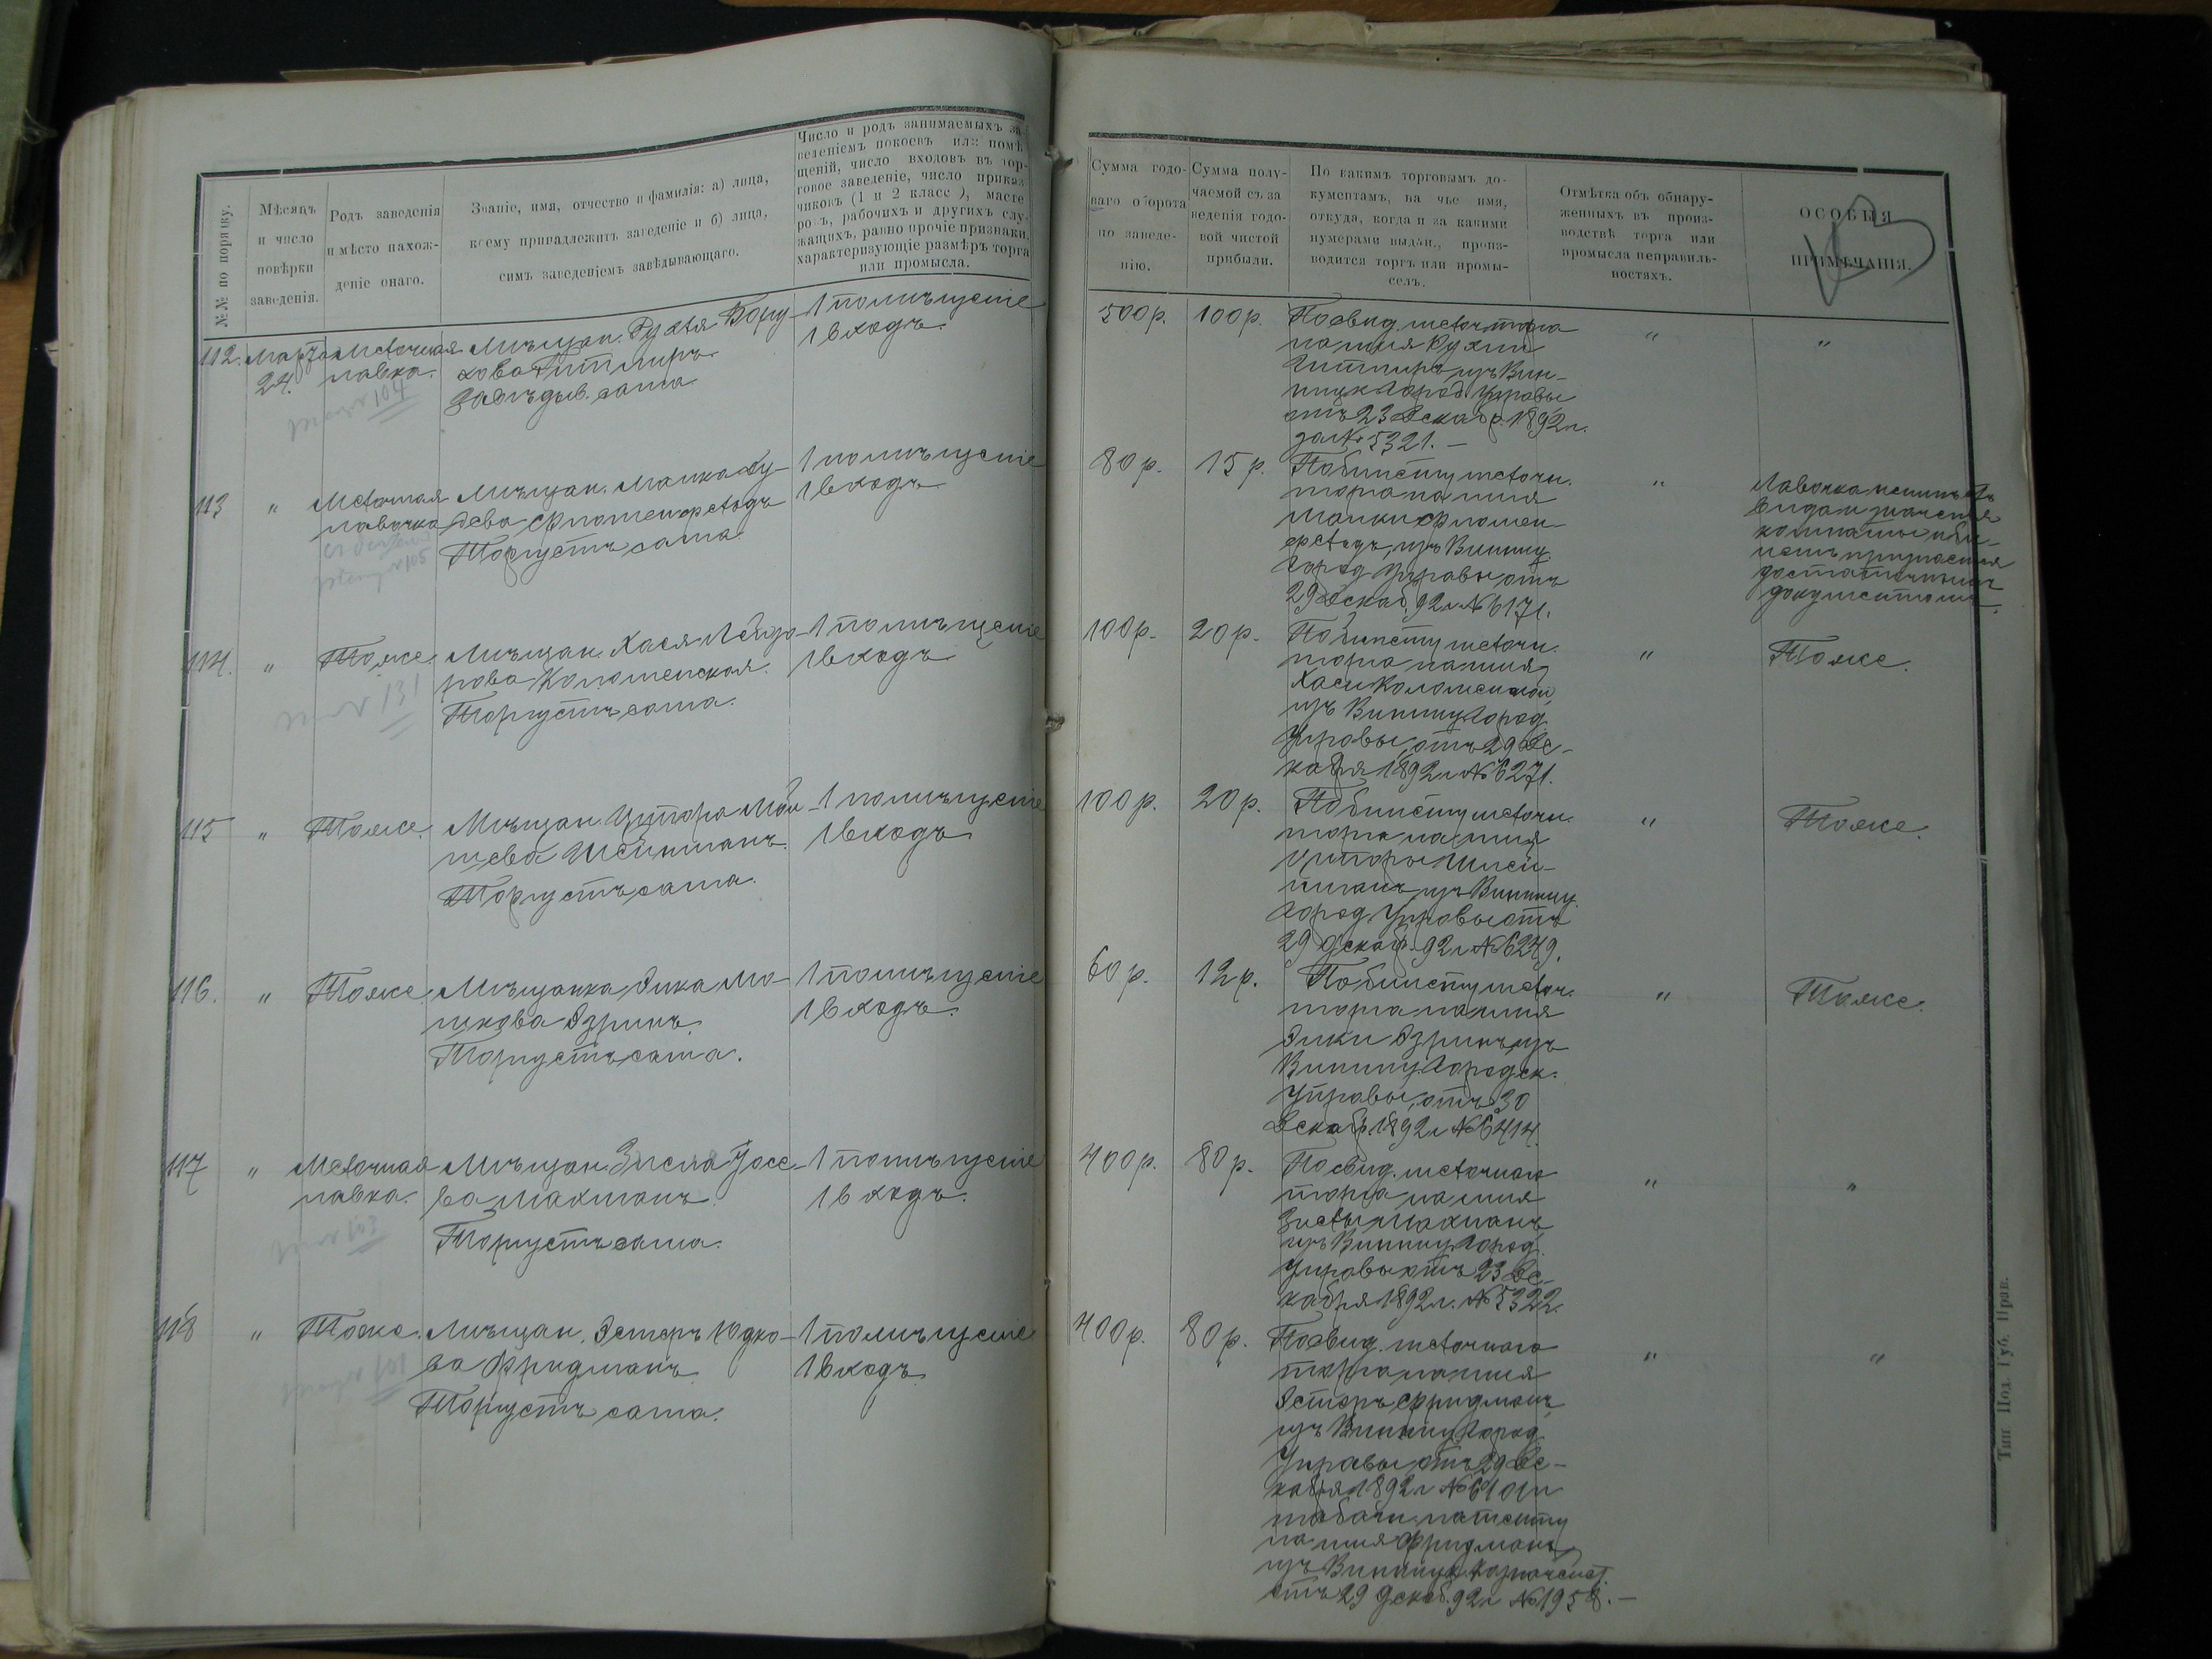 №№ по порядку.
Мѣсяцъ
и число
повѣрки
заведенія.
Родъ заведенія
и мѣсто нахож-
деніе онаго.
Званіе, имя, отчество и фамилія: а) лица,
коему принадлежитъ заведеніе и б) лица,
симъ заведеніемъ завѣдывающаго.
Число и родъ занимаемыхъ за-
веденіемъ покоевъ или помѣ-
щеній, число входовъ въ тор-
говое заведеніе, число приказ-
чиковъ (1 и 2 класс ), масте
ровъ, рабочихъ и другихъ слу-
жащихъ, равно прочіе признаки,
характеризующіе размѣръ торга
или промысла.
112. Марта
24.
Мелочная
лавка.
Мѣщан. Рухля Бору-
хова Гитлиръ
Завѣдыв. сама
1 помѣщеніе
1 входъ.
113 "
Мелочная
лавочка
Мѣщан. Малка Ду-
дева Фломенфельдъ
Торгуетъ сама.
1 помѣщеніе
1 входъ
114. " Тоже.
Мѣщан. Хася Лейзо-
рова Коломенская.
Торгуетъ сама.
1 помѣщеніе
1 входъ
115 " Тоже.
Мѣщан. Ципора Мой-
шева Шейнманъ.
Торгуетъ сама.
1 помѣщеніе
1 входъ
116. " Тоже.
Мѣщанка Эйка Мо-
шкова Озринъ.
Торгуетъ сама.
1 помѣщеніе
1 входъ.
117 "
Мелочная
лавка.
Мѣщан. Зисла Иосе-
ва Махманъ.
Торгуетъ сама.
1 помѣщеніе
1 входъ.
118 " Тоже.
Мѣщан. Эстеръ Юдко-
ва Фридманъ
Торгуетъ сама.
1 помѣщеніе
1 входъ
Сумма годо-
ваго оборота
по заведе-
нію.
Сумма полу-
чаемой съ за
веденія годо-
вой чистой
прибыли.
По какимъ торговымъ до-
кументамъ, на чье имя,
откуда, когда и за какими
нумерами выдан., произ-
водится торгъ или промы-
селъ.
Отмѣтка объ обнару-
женныхъ въ произ-
водствѣ торга или
промысла неправиль-
ностяхъ.
ОСОБЫЯ
ПРИМѢЧАНІЯ.
500 р. 100 р.
По свид. мелоч. торга
на имя Рухли
Гитлиръ изъ Вин-
ницк. Город. Управы
отъ 23 Декабр. 1892 г.
за № 5321. —
" "
80 р. 15 р.
По билету мелочн.
торга на имя
Малки Фломен-
фельдъ, изъ Винниц.
Город. Управы отъ
29 Декаб. 92 г. № 6171.
"
Лавочка не имѣетъ
вида и значенія
комнаты и би-
летъ признается
достаточнымъ
документомъ.
100 р. 20 р.
По билету мелочн.
торга на имя
Хаси Коломенской
изъ Винниц. Город.
Управы, отъ 29 Де-
кабря 1892 г. № 6271.
" Тоже.
100 р. 20 р.
По билету мелочн.
торга на имя
Ципоры Шлей-
нманъ, изъ Винниц.
Город. Управы отъ
29 декаб. 92 г. № 6249.
" Тоже.
60 р. 12 р.
По билету мелоч.
торга на имя
Эйки Озринъ, изъ
Винниц. Городск.
Управы, отъ 30
Декабр. 1892 г. № 6414.
" Тоже.
400 р. 80 р.
По свид. мелочнаго
торга на имя
Зислы Махманъ
изъ Винниц. Город.
Управы отъ 23 Де-
кабря 1892 г. № 5322.
" "
400 р. 80 р.
По свид. мелочнаго
торга на имя
Эстеръ Фридманъ,
изъ Винниц. Город.
Управы отъ 29 Де-
кабря 1892 г. № 6101 и
табачн. патенту
на имя Фридманъ
изъ Винницк. Казначейст.
отъ 29 декаб. 92 г. № 1958. —
" "
Тип. Под. Губ. Прав.